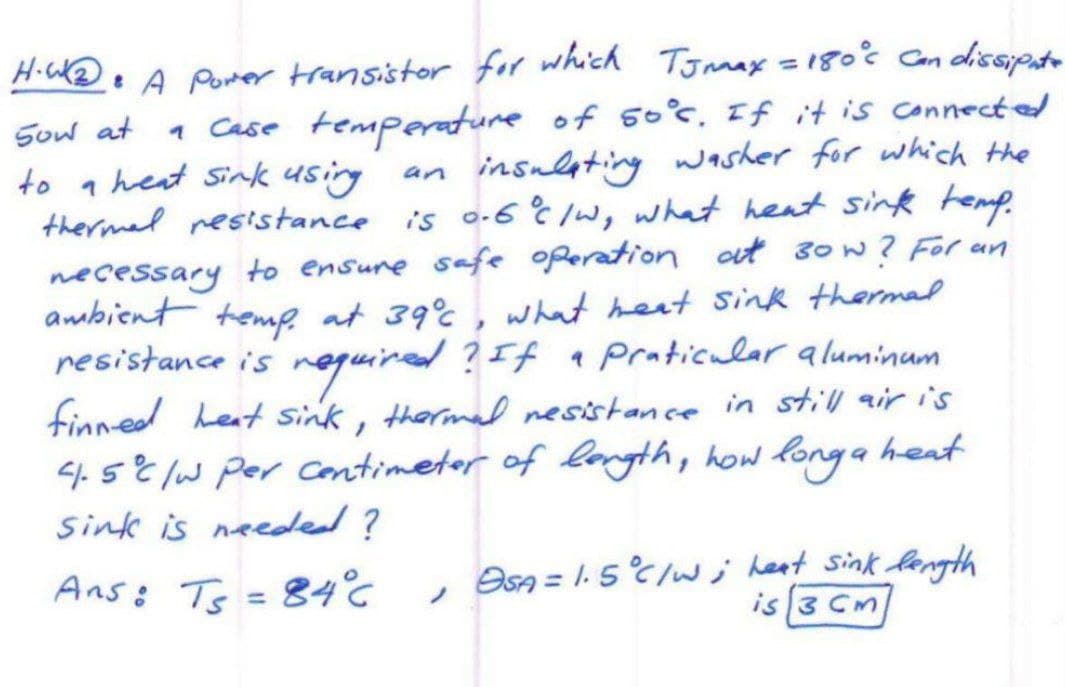 H.W② : A Power transistor for which TJmax = 180°C Can dissipate
50W at a Case temperature of 50°C. If it is Connected
to a heat sink using an insulating washer for which the
thermal resistance is 0.6 °C/W, what heat sink temp.
necessary to ensure safe operation at 30W? For an
ambient temp. at 39°C, what heat sink thermal
resistance is required? If a Praticular aluminum
finned heat sink, thermal resistance in still air is
4.5°C/W Per Centimeter of length, how long a heat
sink is needed?
Ans: Ts = 84°C , ΘSA = 1.5°C/W; heat sink length
is 3 Cm